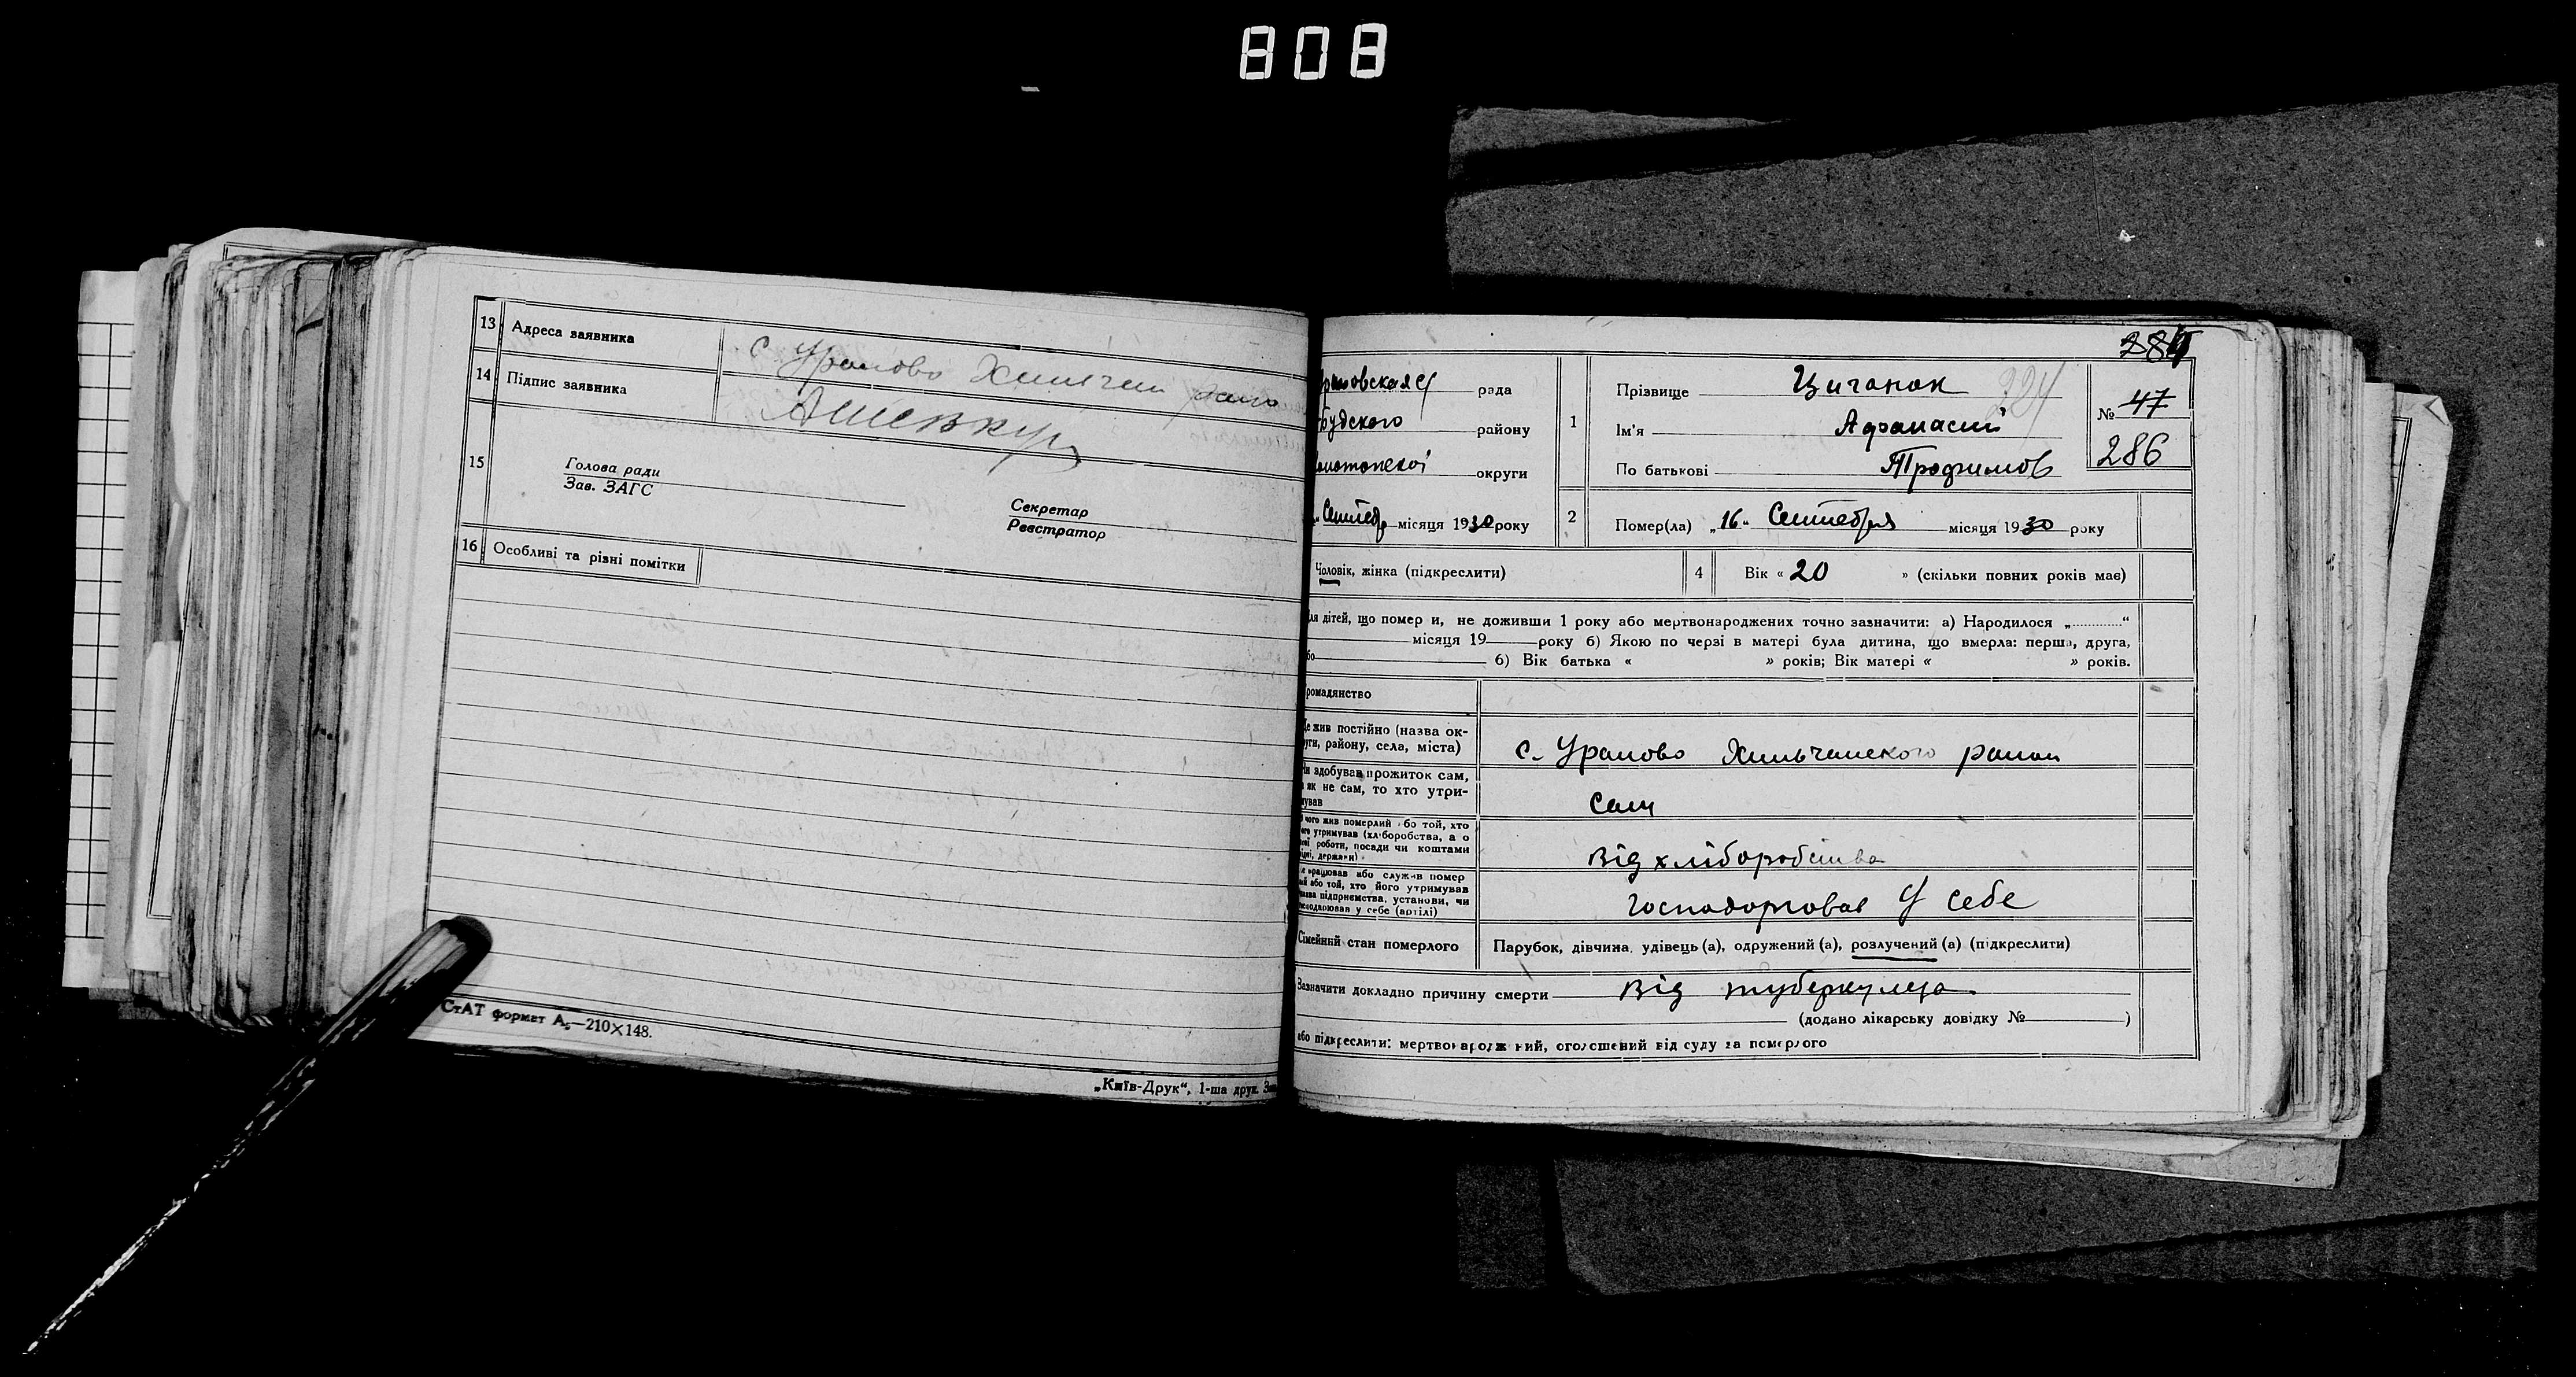 808
13 Адреса заявника с Уралово Хильчан рано
14 Підпис заявника АШевкун
15 Голова ради
Зав. ЗАГС
Секретар
Реєстратор
16 Особливі та різні помітки
СтАТ формат А₅—210×148.
„Київ-Друк“, 1-ша друк. За
284
раловская рада
Будского району
онотопской округи
Сентебр місяця 1930 року
1 Прізвище Циганок
Ім'я Афанасий
По батькові Трофимов
224
№ 47
286
2 Помер(ла) „16“ Сентебря місяця 1930 року
Чоловік, жінка (підкреслити)
4 Вік « 20 » (скільки повних років має)
ля дітей, що помер и, не доживши 1 року або мертвонароджених точно зазначити: а) Народилося „............“
місяця 19 року б) Якою по черзі в матері була дитина, що вмерла: перша, друга,
бо б) Вік батька « » років; Вік матері « » років.
ромадянство
е жив постійно (назва ок-
уги, району, села, міста) с. Уралово Хильчанского раион
и здобував прожиток сам,
як не сам, то хто утри-
ував Сам
чого жив померлий бо той, хто
його утримував (хліборобства, а о
ої роботи, посади чи коштами
ідні, держави) від хліборобства
е працював або служив помер
ий або той, хто його утримував
назва підприємства, установи, чи
господарював у себе (артілі) господорював у себе
Сімейний стан померлого Парубок, дівчина, удівець (а), одружений (а), розлучений (а) (підкреслити)
Зазначити докладно причину смерти від туберкулеза
(додано лікарську довідку № )
або підкреслити: мертвонароджений, оголошений від суду за померлого